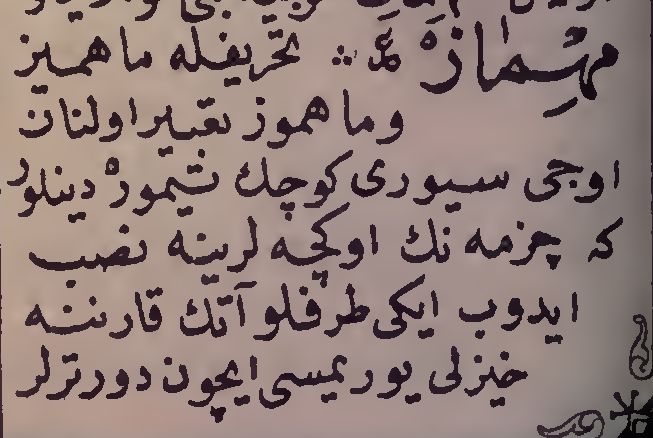 مهماز ع ∴ تحريفله ما هميز
وما هموز تعبير اولنان
اوجى سيورى كوچك تيموره دينلور
كه چزمه نك اوكچه لرينه نصب
ايدوب ايكى طرفلو آتك قارننه
خيزلى يوريمسى ايچون دورترلر